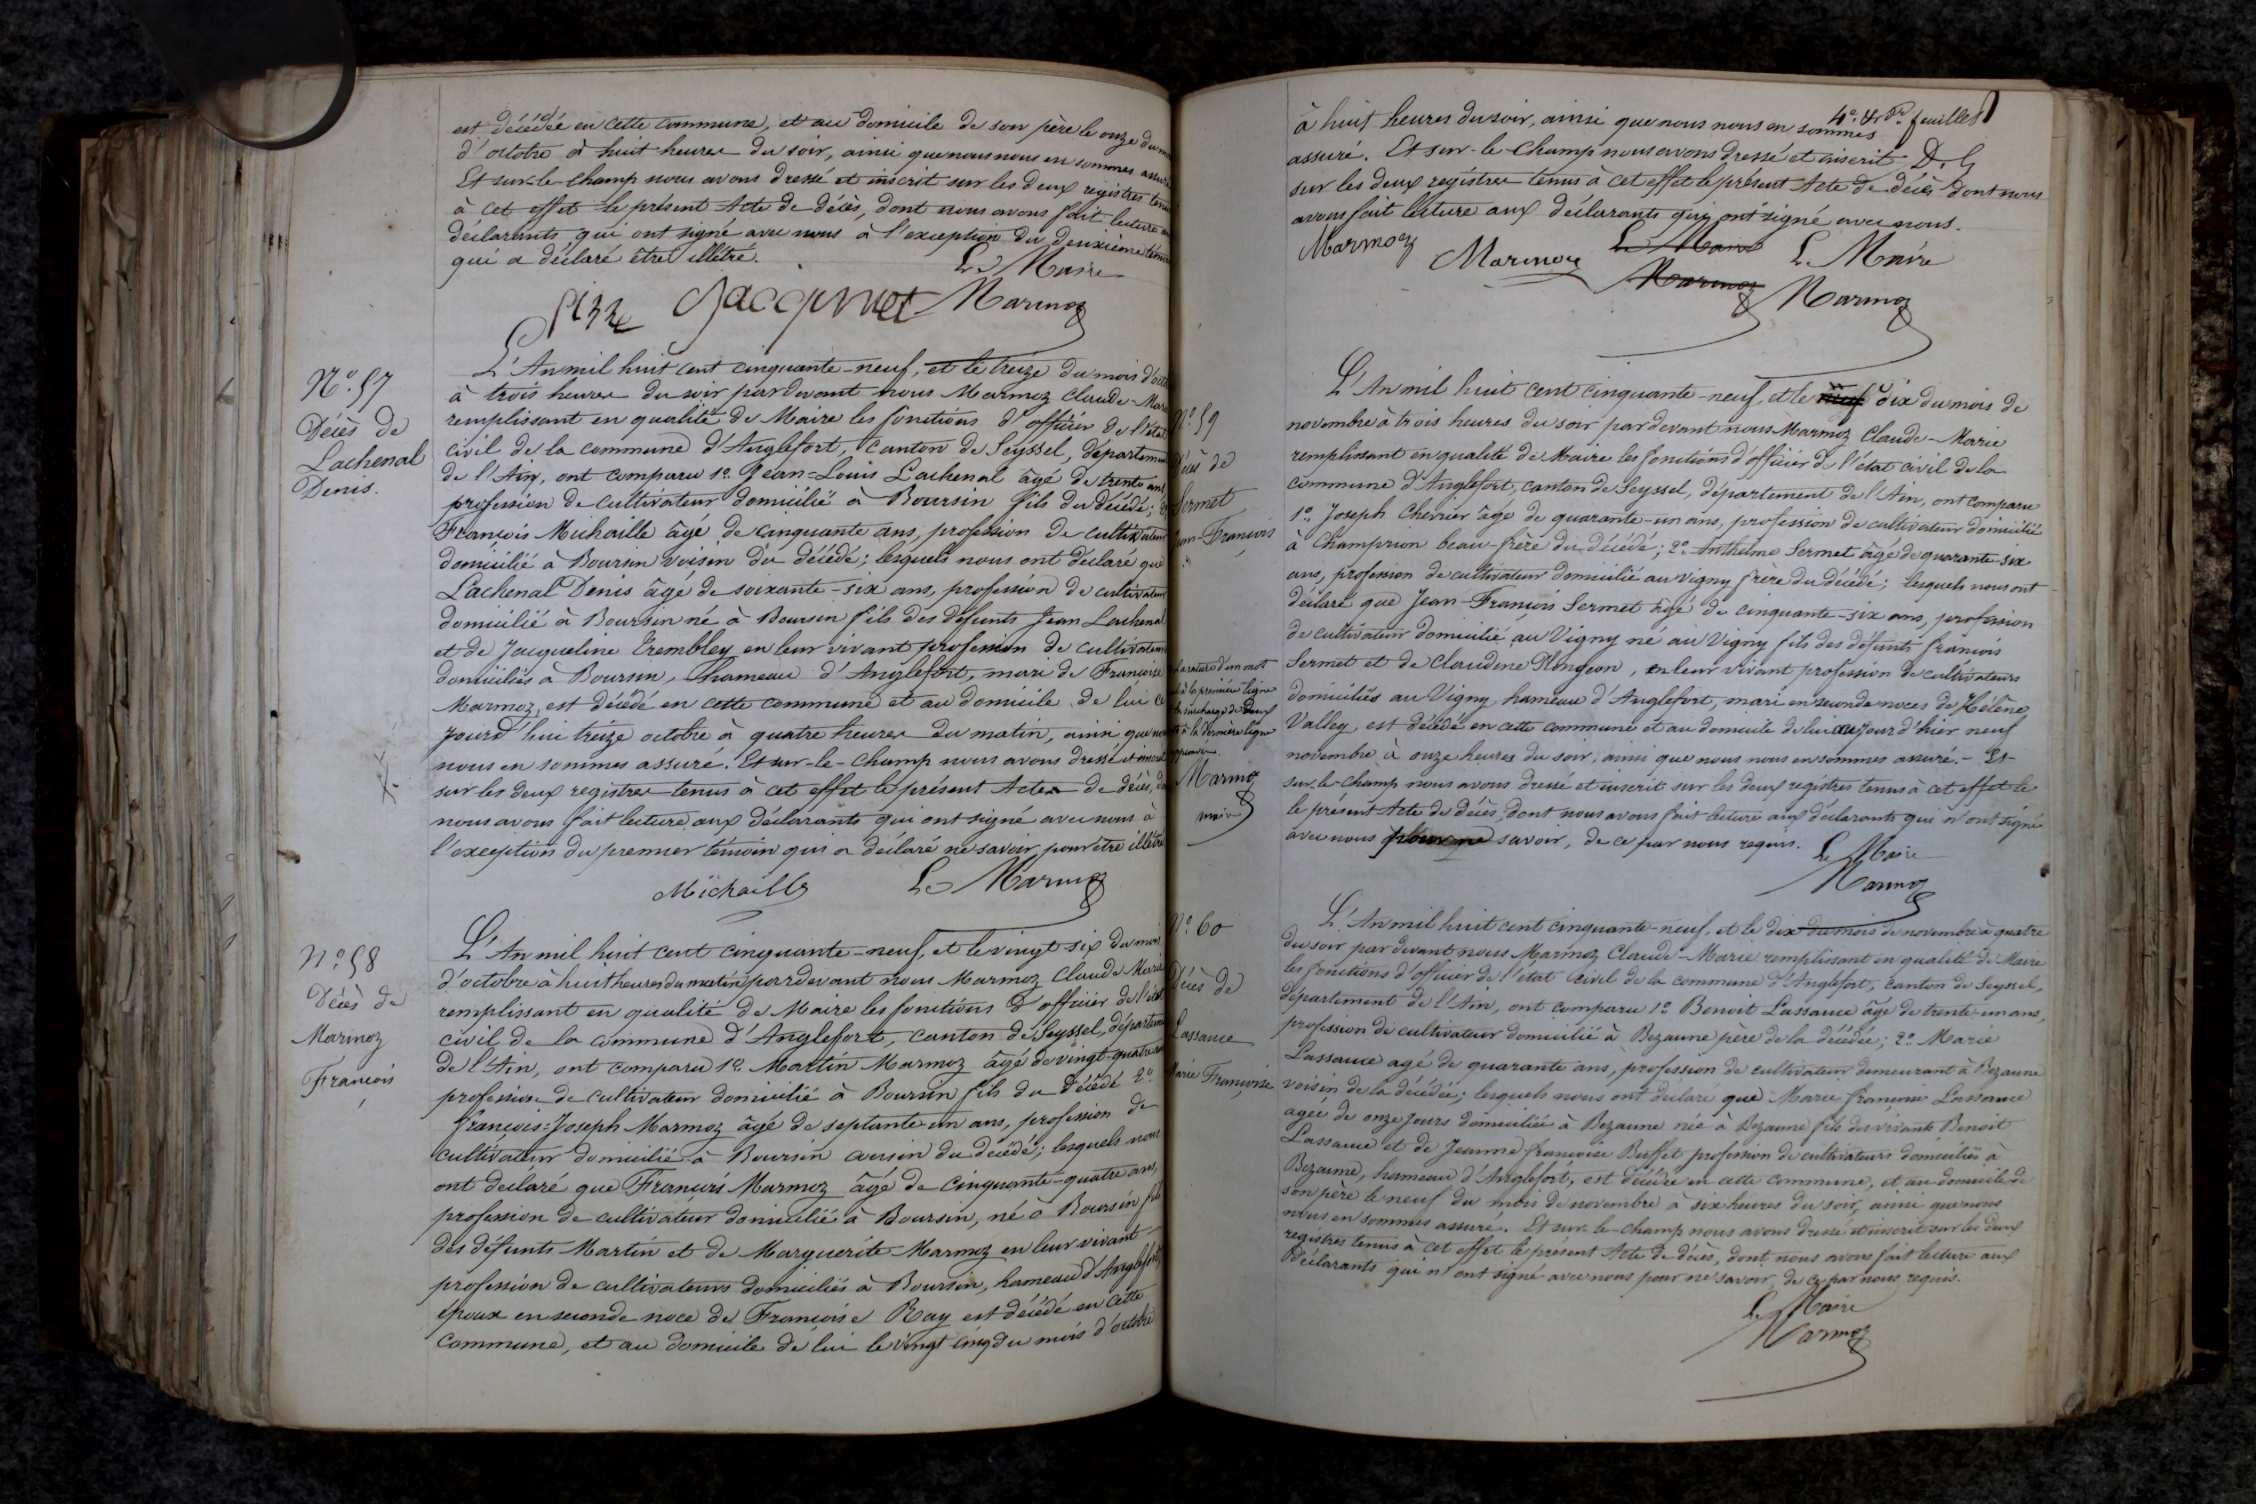 est décédée en cette commune, et au domicile de son père le onze du
d'octobre à huit heures du soir, ainsi que nous nous en sommes assuré
Et sur-le-champ nous avons dressé et inscrit sur les deux registres tenus
à cet effet le présent Acte de décès, dont nous avons fait lecture
déclarants, qui ont signé avec nous à l'exception du deuxième témoin
qui a déclaré être illétré.
Le Maire
Jacquinet Marmoz
N° 57
Décès de
Lachenal
Denis.
L'An mil huit cent cinquante-neuf, et le treize du mois d'oct
à trois heures du soir par devant nous Marmoz Claude-Mar
remplissant en qualité de Maire les fonctions d'officier de l'état
civil de la commune d'Anglefort, canton de Seyssel, départeme
de l'Ain, ont comparu 1° Jean-Louis Lachenal âgé de trente ans
profession de cultivateur domicilié à Boursin fils du décédé; 2°
François Michaille âgé de cinquante ans, profession de cultivateur
domicilié à Boursin voisin du décédé; lesquels nous ont déclaré que
Lachenal Denis âgé de soixante-six ans, profession de cultivateur
domicilié à Boursin né à Boursin fils des défunts Jean Lachenal
et de Jacqueline Trembley en leur vivant profession de cultivateurs
domiciliés à Boursin, hameau d'Anglefort, mari de Françoise
Marmoz, est décédé en cette commune et au domicile de lui ce
jourd'hui treize octobre à quatre heures du matin, ainsi que nous
nous en sommes assuré. Et sur-le-champ nous avons dressé et inscrit
sur les deux registres tenus à cet effet le présent Acte de décès,
nous avons fait lecture aux déclarants qui ont signé avec nous à
l'exception du premier témoin qui a déclaré ne savoir pour être illétré
Michaille Le Marmoz
N° 58
Décès de
Marmoz
François
L'An mil huit cent cinquante-neuf, et le vingt six du mois
d'octobre à huit heures du matin par devant nous Marmoz Claude Marie
remplissant en qualité de Maire les fonctions d'officier de l'état
civil de la commune d'Anglefort, canton de Seyssel, départeme
de l'Ain, ont comparu 1° Martin Marmoz âgé de vingt-quatre
profession de cultivateur domicilié à Boursin fils du décédé 2°
François-Joseph Marmoz âgé de septante-un ans, profession de
cultivateur domicilié à Boursin cousin du décédé; lesquels nous
ont déclaré que François Marmoz âgé de cinquante-quatre ans,
profession de cultivateur domicilié à Boursin, né à Boursin fils
des défunts Martin et de Marguerite Marmoz en leur vivant
profession de cultivateurs domiciliés à Boursin, hameau d'Anglefort,
époux en seconde noce de Françoise Ray est décédé en cette
commune, et au domicile de lui le vingt cinq du mois d'octobre
4° & Dr feuillet
à huit heures du soir, ainsi que nous nous en sommes
assuré. Et sur-le-champ nous avons dressé et inscrit D. G
sur les deux registres tenus à cet effet le présent Acte de décès dont nous
avons fait lecture aux déclarants qui ont signé avec nous.
Marmoz Marmoz Le Maire Le Maire
Marmoz Marmoz
N° 59
Décès de
Sermet
Jean-François
L'An mil huit cent cinquante-neuf, et le neuf dix du mois de
novembre à trois heures du soir par devant nous Marmoz Claude-Marie
remplissant en qualité de Maire les fonctions d'officier de l'état civil de la
commune d'Anglefort, canton de Seyssel, département de l'Ain, ont comparu
1° Joseph Chevrier âgé de quarante-un ans, profession de cultivateur domicilié
à Champrion beau-frère du décédé; 2° Anthelme Sermet âgé de quarante-six
ans, profession de cultivateur domicilié au Vigny frère du décédé; lesquels nous ont
déclaré que Jean-François Sermet âgé de cinquante-six ans, profession
de cultivateur domicilié au Vigny né au Vigny fils des défunts François
Sermet et de Claudine Plongeon, en leur vivant profession de cultivateurs
domiciliés au Vigny hameau d'Anglefort, mari en seconde noces de Hélène
Valley est décédé en cette commune et au domicile de lui au jour d'hier neuf
novembre à onze heures du soir, ainsi que nous nous en sommes assuré. - Et
sur-le-champ nous avons dressé et inscrit sur les deux registres tenus à cet effet le
le présent Acte de décès, dont nous avons fait lecture aux déclarants qui n'ont signé
avec nous pour ne savoir, de ce par nous requis.
Le Maire
Marmoz
La rature d'un mot
à la première ligne
la surcharge de deux
à la dernière ligne
Marmoz
maire
N° 60
Décès de
Lassauce
Marie Françoise
L'An mil huit cent cinquante-neuf, et le dix du mois de novembre à quatre
du soir par devant nous Marmoz Claude-Marie remplissant en qualité de Maire
les fonctions d'officier de l'état civil de la commune d'Anglefort, canton de Seyssel,
département de l'Ain, ont comparu 1° Benoit Lassauce âgé de trente-un ans,
profession de cultivateur domicilié à Bezaune père de la décédée; 2° Marie
Lassauce agé de quarante ans, profession de cultivateur demeurant à Bezaune
voisin de la décédée; lesquels nous ont déclaré que Marie Françoise Lassauce
agée de onze jours domiciliée à Bezaune née à Bezaune fils des vivants Benoit
Lassauce et de Jeanne Françoise Buffet profession de cultivateurs domiciliés à
Bezaune, hameau d'Anglefort, est décédée en cette commune, et au domicile de
son père le neuf du mois de novembre à six heures du soir, ainsi que nous
nous en sommes assuré. Et sur-le-champ nous avons dressé et inscrit sur les deux
registres tenus à cet effet le présent Acte de décès, dont nous avons fait lecture aux
Déclarants qui n'ont signé avec nous pour ne savoir, de ce par nous requis.
Le Maire
Marmoz